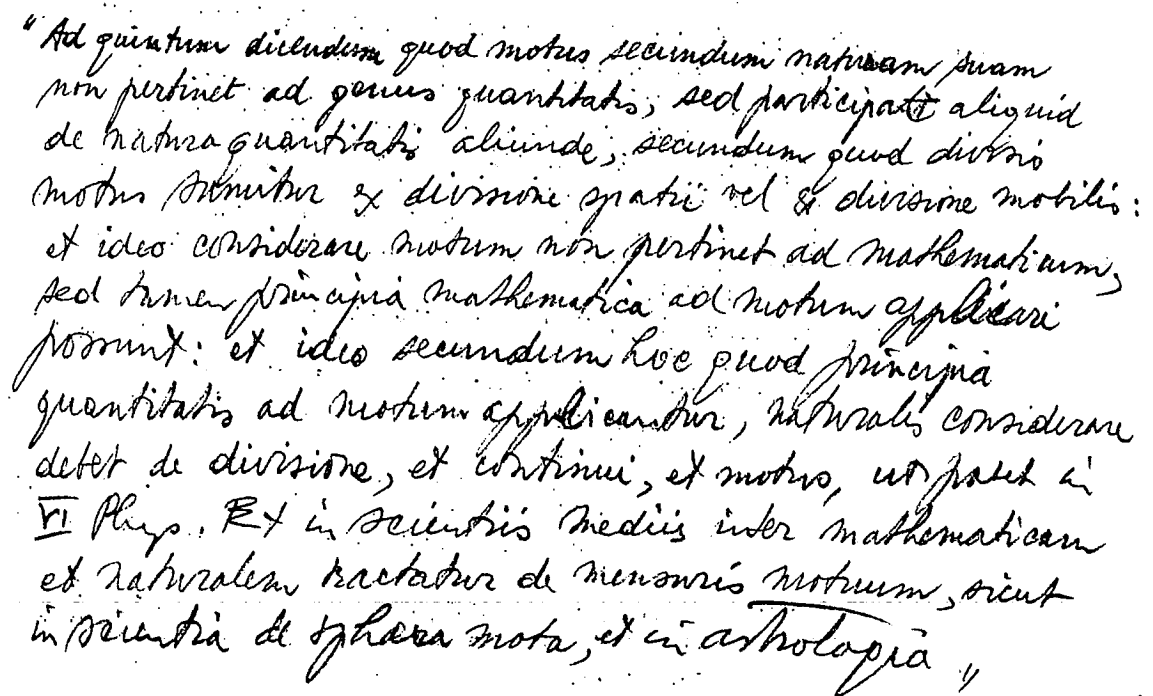 "Ad quintum dicendum quod motus secundum naturam suam
non pertinet ad genus quantitatis, sed participat aliquid
de natura quantitatis aliunde, secundum quod divisio
motus sumitur ex divisione spatii vel ex divisione mobilis:
et ideo considerare motum non pertinet ad mathematicum,
sed tamen principia mathematica ad motum applicari
possunt: et ideo secundum hoc quod principia
quantitatis ad motum applicantur, naturalis considerare
debet de divisione, et continui, et motus, ut patet in
VI Phys. Et in scientiis mediis inter mathematicam
et naturalem tractatur de mensuris motuum, sicut
in scientia de sphaera mota, et in astrologia"